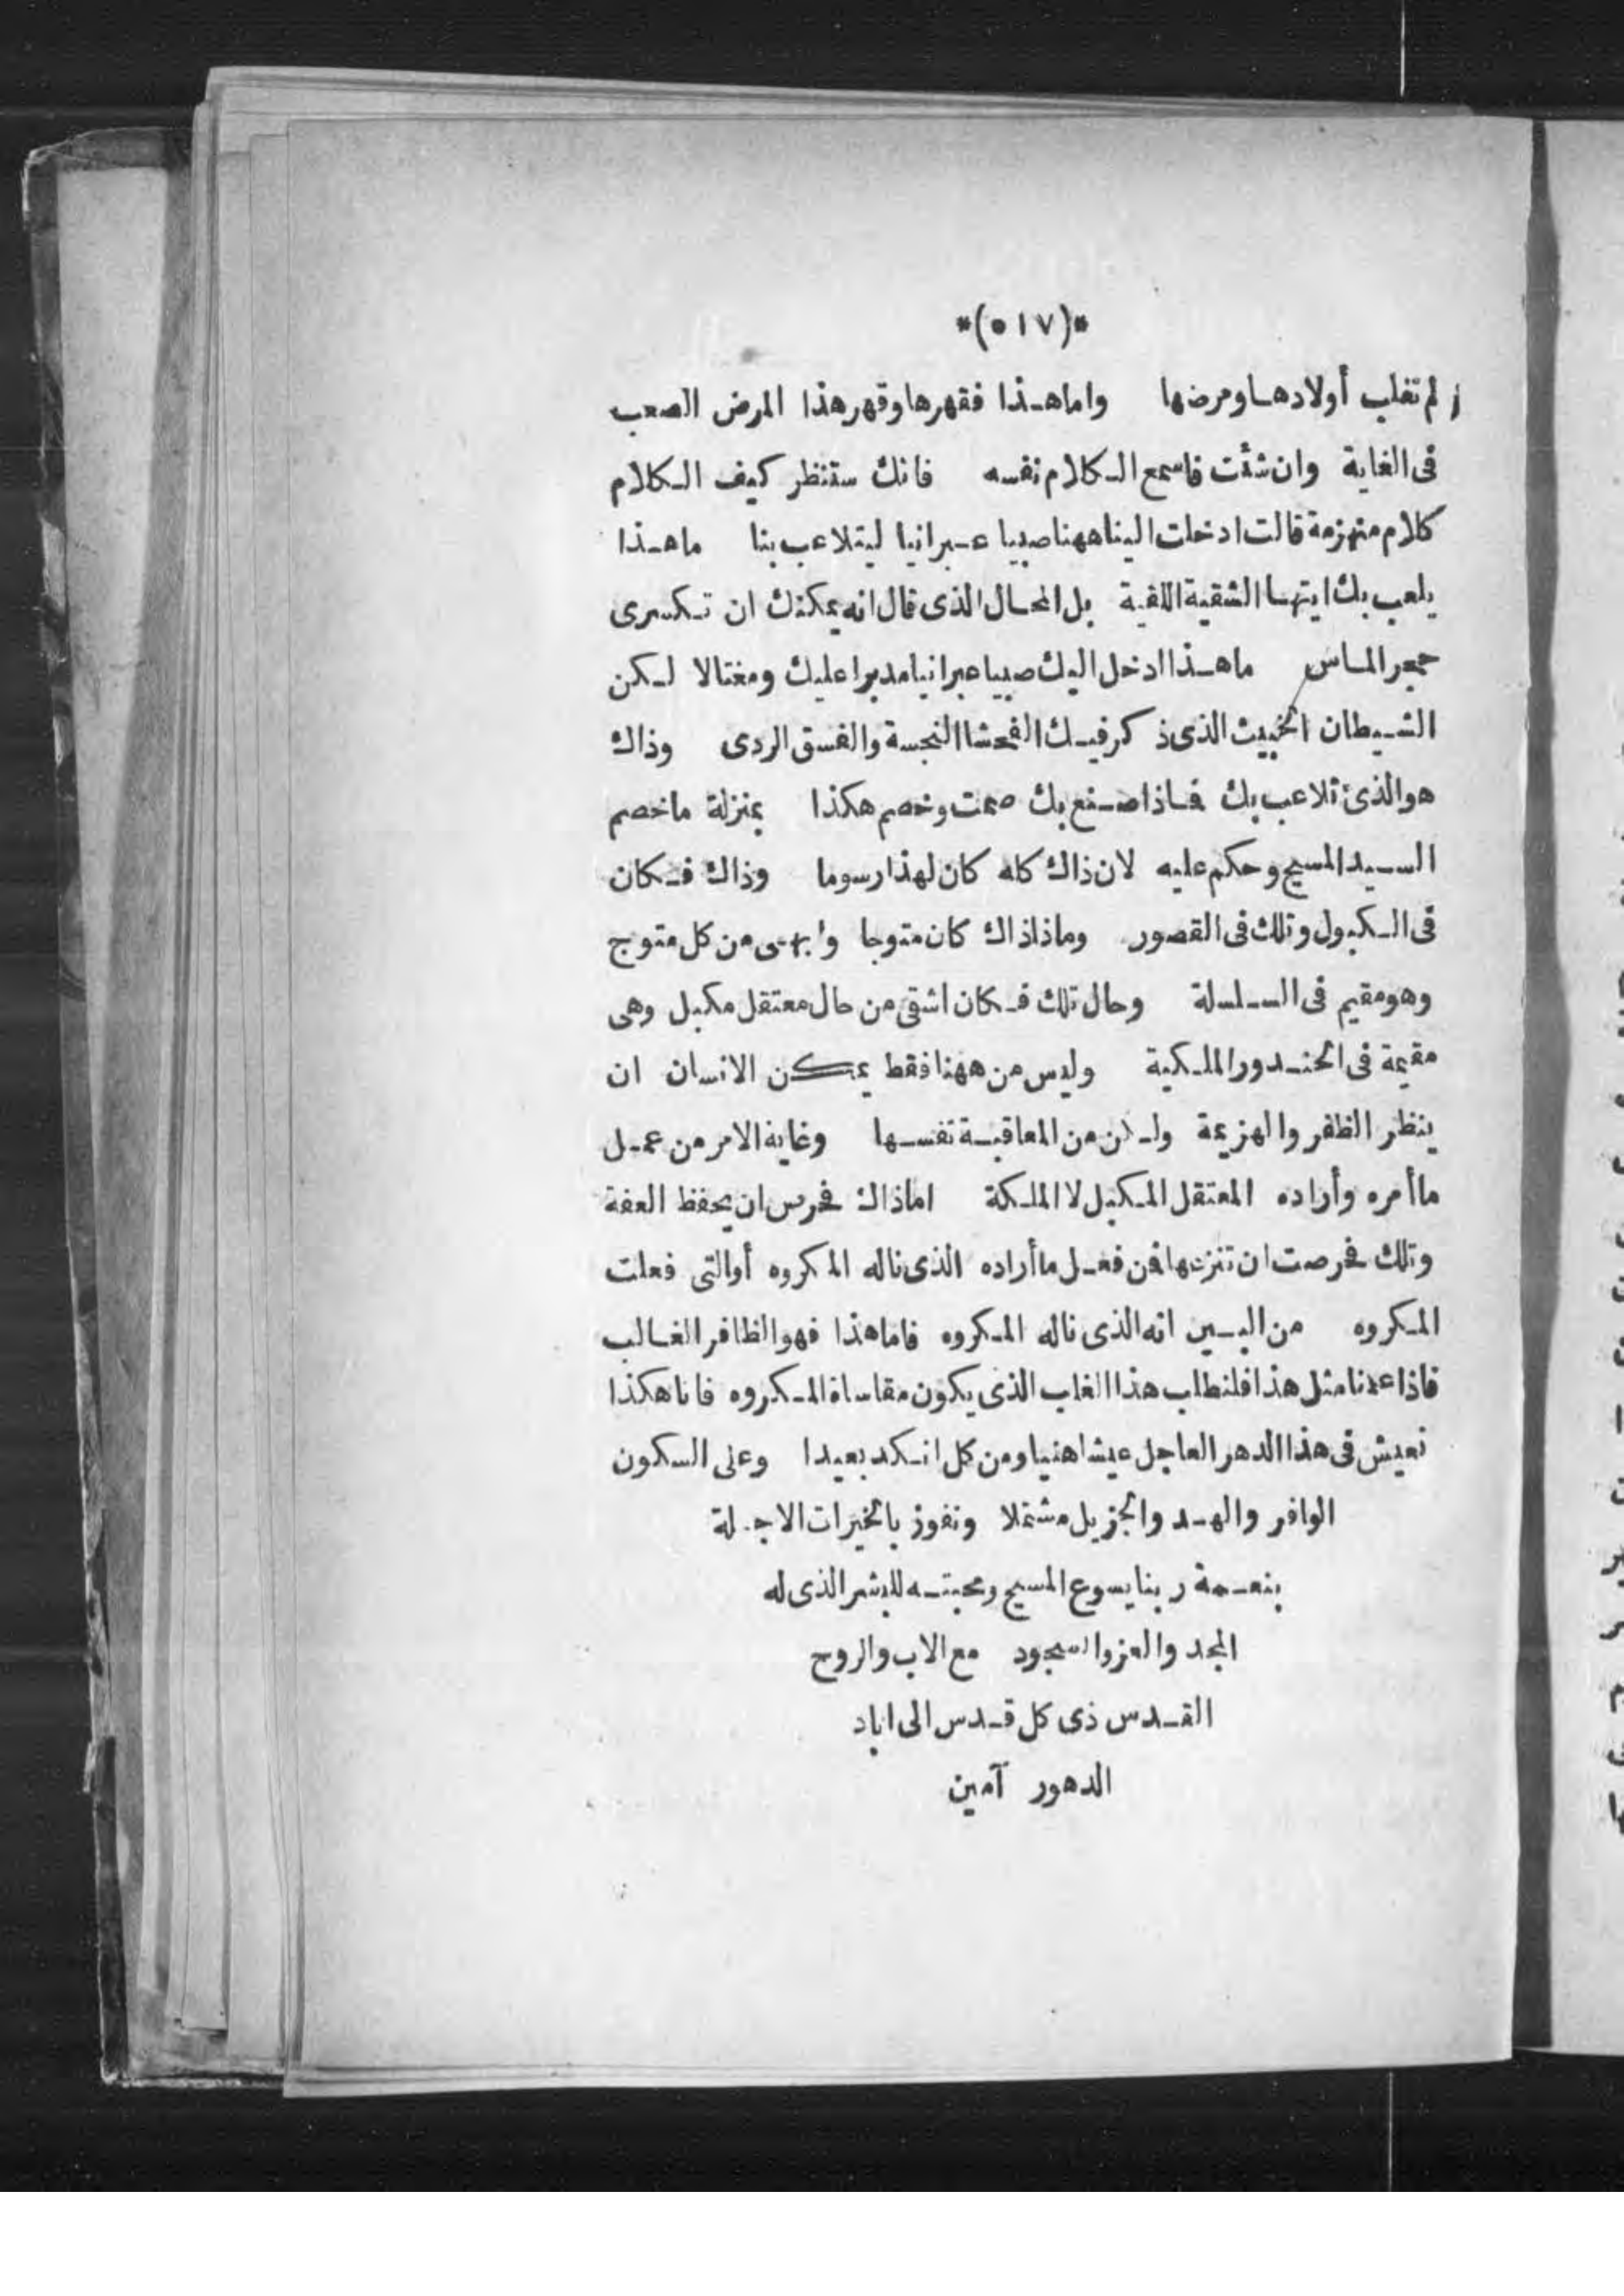 *(٥١٧)*
لم تغلب أولادها ومرضها واما هذا فقهرها وقهر هذا المرض الصعب
فى الغاية وان شئت فاسمع الكلام نفسه فانك ستنظر كيف الكلام
كلام منهزمة قالت ادخلت الينا ههنا صبيا عبرانيا ليتلاعب بنا ما هذا
يلعب بك ايتها الشقية بل المحال الذى قال انه يمكنك ان تكسرى
حجر الماس ما هذا ادخل اليك صبيا عبرانيا مدبرا عليك ومغتالا لكن
الشيطان الخبيث الذى ذكر فيك الفحشا النجسة والفسق الردى وذاك
هو الذى تلاعب بك فاذا صنع بك صمت وخصم هكذا بمنزلة ما خصم
السيد المسيح وحكم عليه لان ذاك كله كان لهذا رسوما وذاك فكان
فى الكبول وتلك فى القصور وماذا اذ ذاك كان متوجا وابهى من كل متوج
وهو مقيم فى السلسلة وحال تلك فكان اشقى من حال معتقل مكبل وهى
مقيمة فى الخدور الملكية وليس من ههنا فقط يمكن الانسان ان
ينظر الظفر والهزيمة ولكن من المعاقبة نفسها وغاية الامر من عمل
ما أمره وأراده المعتقل المكبل لا الملكة اما ذاك فحرص ان يحفظ العفة
وتلك فحرصت ان تنزعها فمن فعل ما أراده الذى ناله المكروه أو التى فعلت
المكروه من البين انه الذى ناله المكروه فاما هذا فهو الظافر الغالب
فاذا علمنا مثل هذا فلنطلب هذا الغلب الذى يكون مقاساة المكروه فانا هكذا
نعيش فى هذا الدهر العاجل عيشا هنيا ومن كل انكد بعيدا وعلى السكون
الوافر والهدو الجزيل مشتملا ونفوز بالخيرات الاجلة
بنعمة ربنا يسوع المسيح ومحبته للبشر الذى له
المجد والعز والسجود مع الاب والروح
القدس ذى كل قدس الى اباد
الدهور آمين